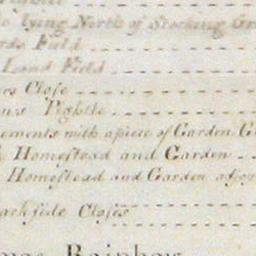 lying North of Stocking Gr
Field
Land Field
rs Close
Pightle
ements with a piece of Garden G
Homestead and Garden
Homestead and Garden adjoy
ackside Closes